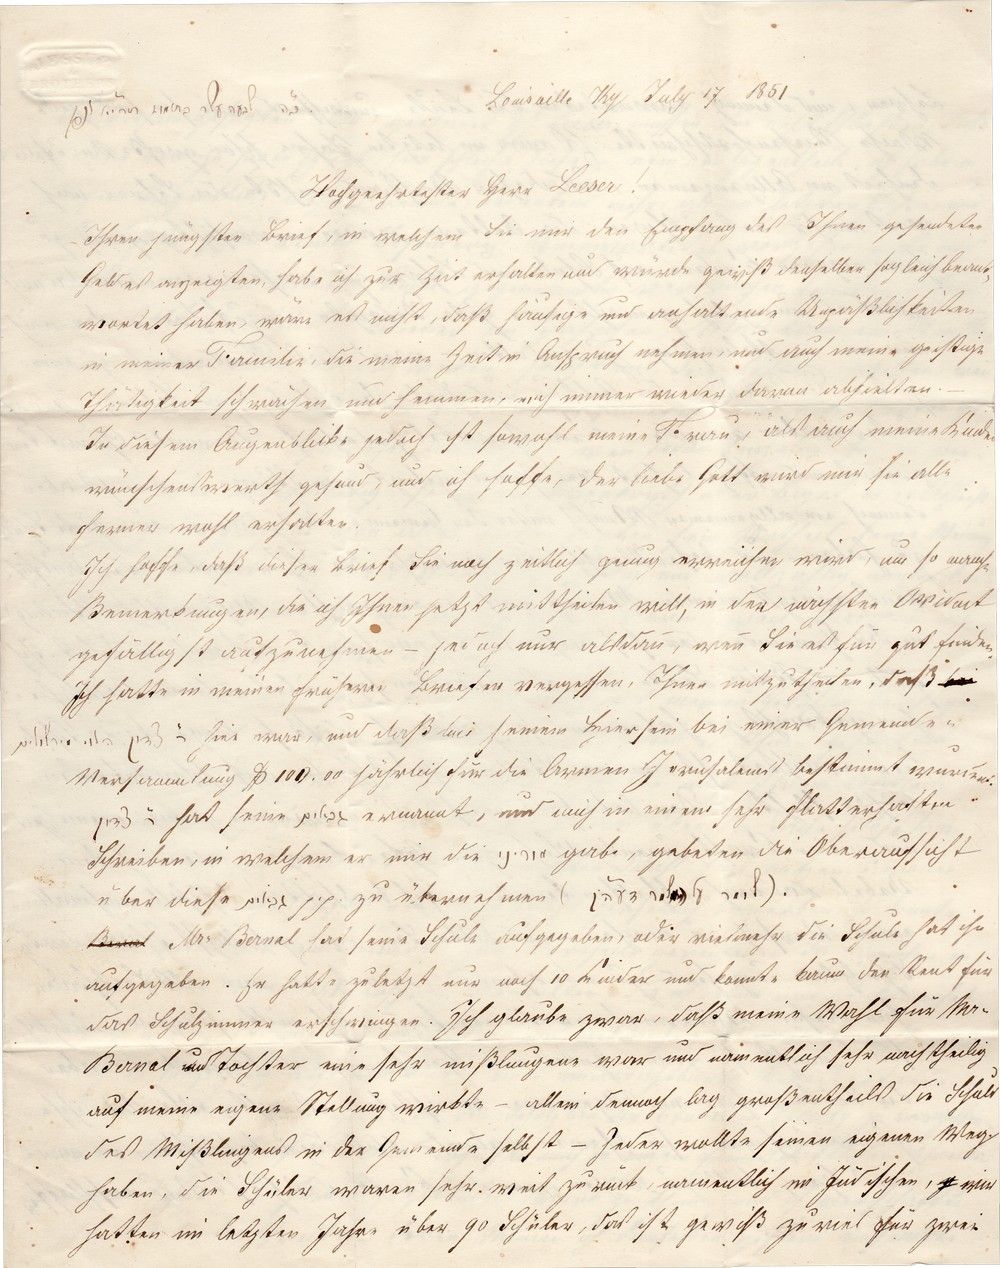 ב״ה
Louisville Ky July 17 1851
Hochgeehrtester Herr Leeser!
Ihren jüngsten Brief, in welchem Sie mir den Empfang des Ihnen gesendeten
Geldes anzeigten, habe ich zur Zeit erhalten und würde gewiß denselben sogleich beant-
wortet haben, wäre es nicht, daß häufige und anhaltende Unpäßlichkeiten
in meiner Familie, die meine Zeit in Anspruch nehmen, und auch meine geistige
Thätigkeit schwächen und hemmen, mich immer wieder davon abhielten. —
In diesem Augenblicke jedoch ist sowohl meine Frau, als auch meine Kinder
wünschenswerth gesund, und ich hoffe, der liebe Gott wird mir sie alle
ferner wohl erhalten.
Ich hoffe, daß dieser Brief Sie noch zeitlich genug erreichen wird, um so manche
Bemerkungen, die ich Ihnen jetzt mittheilen will, in der nächsten Occident
gefälligst aufzunehmen – jedoch nur alsdann, wenn Sie es für gut finden.
Ich hatte in meinen früheren Briefen vergessen, Ihnen mitzutheilen, daß
ר׳ אהרן הלוי מירושלים hier war, und daß bei seinem Hiersein bei einer Gemeinde-
Versammlung $ 100.00 jährlich für die Armen Jerusalems bestimmt wurden.
ר׳ אהרן hat seine גבאים ernannt, und mich in einem sehr schmeichelhaften
Schreiben, in welchem er mir die מורינו gabe, gebeten die Oberaufsicht
über diese גבאים zu übernehmen
Mr. Bernal hat seine Schule aufgegeben, oder vielmehr die Schule hat ihn
aufgegeben. Er hatte zuletzt nur noch 10 Kinder und konnte kaum den Rent für
das Schulzimmer erschwingen. Ich glaube zwar, daß meine Wahl für Mr.
Bernal und Tochter eine sehr mißlungene war und namentlich sehr nachtheilig
auf meine eigene Stellung wirkte – allein dennoch lag großentheils die Schuld
des Mißlingens in der Gemeinde selbst – Jeder wollte seinen eigenen Weg
haben, die Schüler waren sehr weit zurück, namentlich im Jüdischen, wir
hatten im letzten Jahre über 90 Schüler, das ist gewiß zu viel für zwei